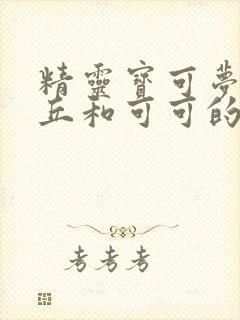 精靈寶可夢
丘和可可的
考考考